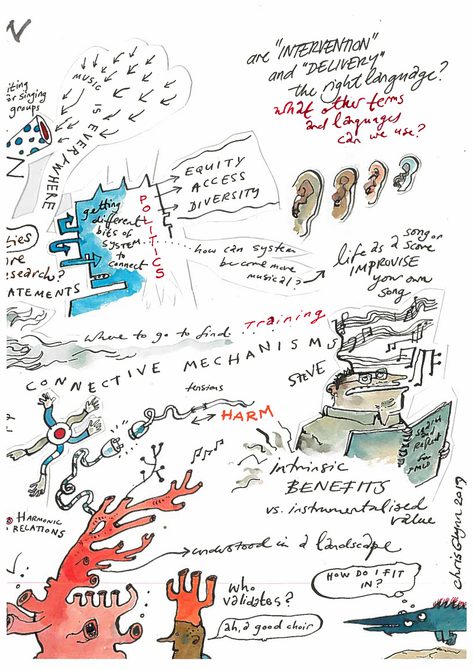 are "INTERVENTION"
and "DELIVERY"
the right language?
what other terms
and languages
can we use?
iting
or singing
groups
N
MUSIC IS EVERYWHERE
EQUITY
ACCESS
DIVERSITY
getting
different
bits of
system
to
connect
POLITICS
how can system
become more
musical?
life as a song or score
IMPROVISE
your own
song
ies
re
search?
ATEMENTS
where to go to find... Training
CONNECTIVE MECHANISMS
STEVE
tensions
HARM
Intrinsic
BENEFITS
vs. instrumentalised
value
HARMONIC
RELATIONS
understood in a landscape
who
validates?
ah, a good choir
HOW DO I FIT
IN?
chris Glynn 2019